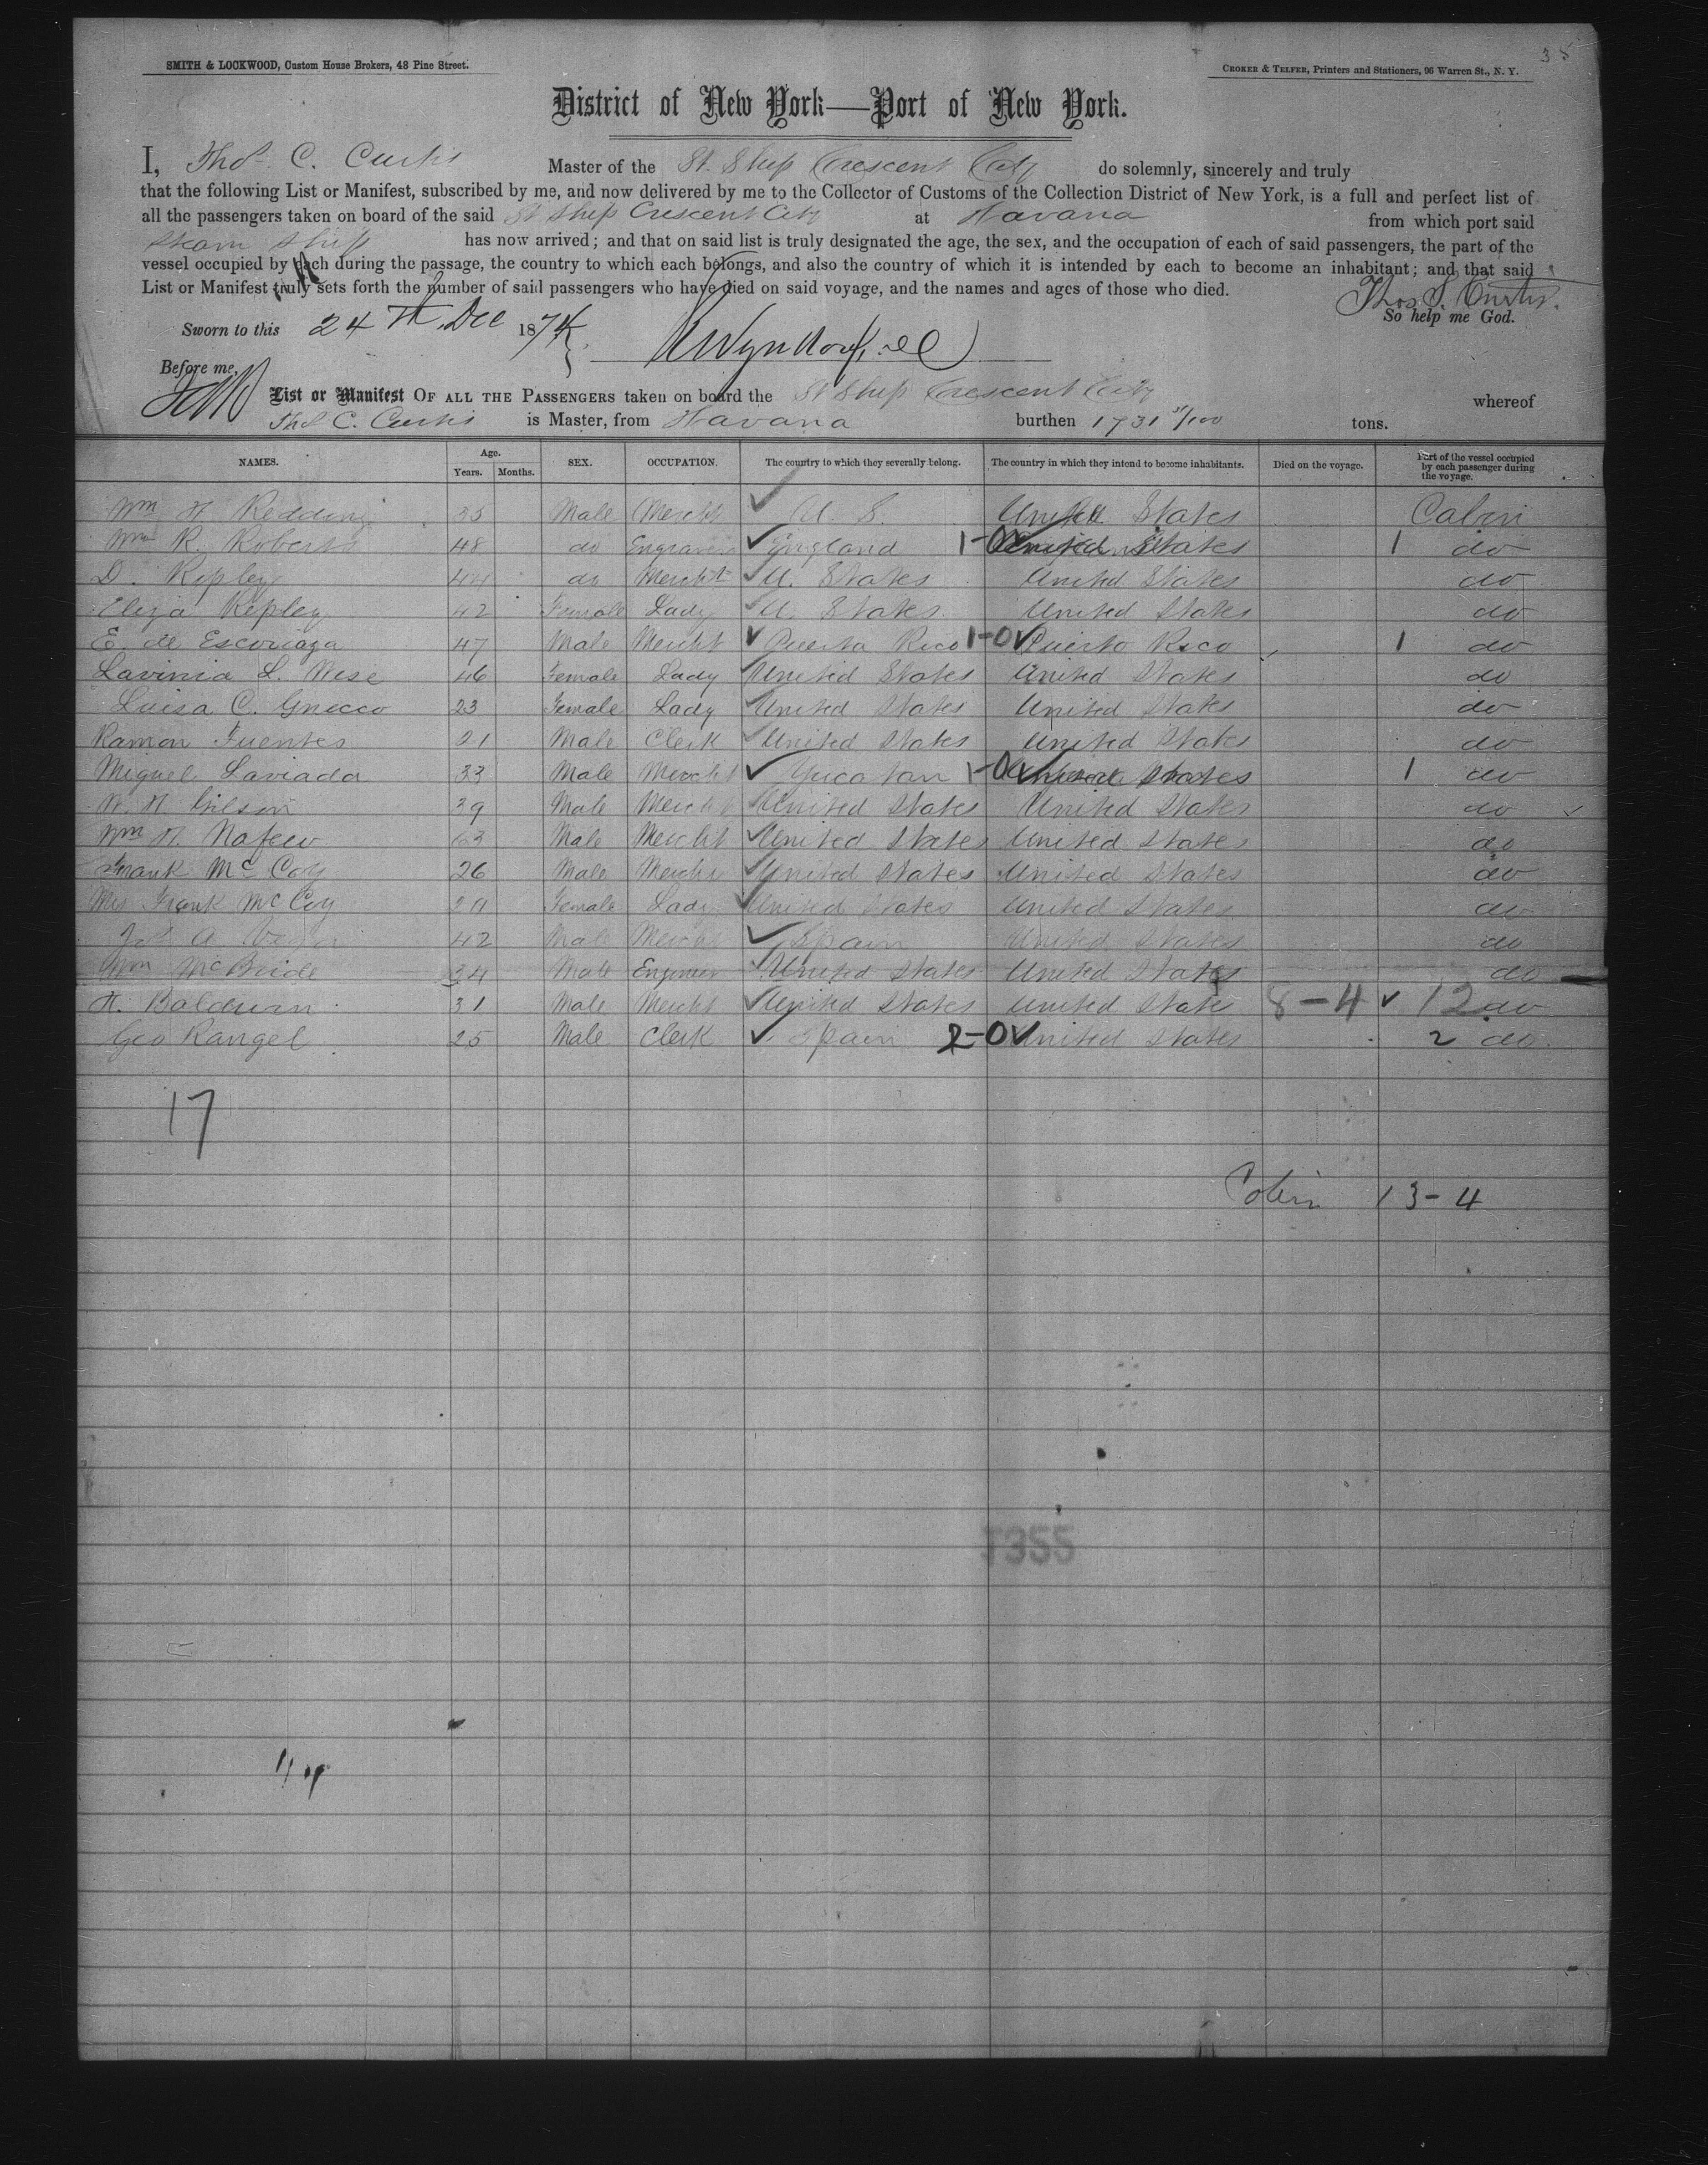 35
SMITH & LOCKWOOD, Custom House Brokers, 48 Pine Street.
CROKER & TELFER, Printers and Stationers, 96 Warren St., N. Y.
District of New York—Port of New York.
I, Thos C. Curtis Master of the St. Ship Crescent City do solemnly, sincerely and truly
that the following List or Manifest, subscribed by me, and now delivered by me to the Collector of Customs of the Collection District of New York, is a full and perfect list of
all the passengers taken on board of the said St Ship Crescent City at Havana from which port said
Steam Ship has now arrived; and that on said list is truly designated the age, the sex, and the occupation of each of said passengers, the part of the
vessel occupied by each during the passage, the country to which each belongs, and also the country of which it is intended by each to become an inhabitant; and that said
List or Manifest truly sets forth the number of said passengers who have died on said voyage, and the names and ages of those who died.
Thos S. Curtis.
So help me God.
Sworn to this 24th Dec 1874
Before me,
List or Manifest OF ALL THE PASSENGERS taken on board the St Ship Crescent City whereof
Thos C. Curtis is Master, from Havana burthen 1731 /100 tons.
NAMES. Age. Years. Months. SEX. OCCUPATION. The country to which they severally belong. The country in which they intend to become inhabitants. Died on the voyage. Part of the vessel occupied by each passenger during the voyage.
Wm H Redding 35 Male Mercht U. S. United States Cabin
Wm R. Roberts 48 do Engraver England 1-0 United States 1 do
D. Ripley 44 do Mercht U. States United States do
Eliza Ripley 42 Female Lady U. States United States do
E. de Escoriaza 47 Male Mercht Puerto Rico 1-0 Puerto Rico 1 do
Lavinia L. Wise 46 Female Lady United States United States do
Luisa C. Gnecco 23 Female Lady United States United States do
Ramon Fuentes 21 Male Clerk United States United States do
Miguel Laviada 33 Male Mercht Yucatan 1-0 States 1 do
Gilson 39 Male Mercht United States United States do
Wm H. Nafew 63 Male Mercht United States United States do
Frank McCoy 26 Male Mercht United States United States do
Mrs Frank McCoy Female Lady United States United States do
A. 42 Male Mercht Spain United States do
Wm McBride 34 Male Engineer United States United States do
H. Balduan 31 Male Mercht United States United State 8-4 12 do
Geo Rangel 25 Male Clerk Spain 2-0 United States 2 do
17
Cabin 13-4
1355